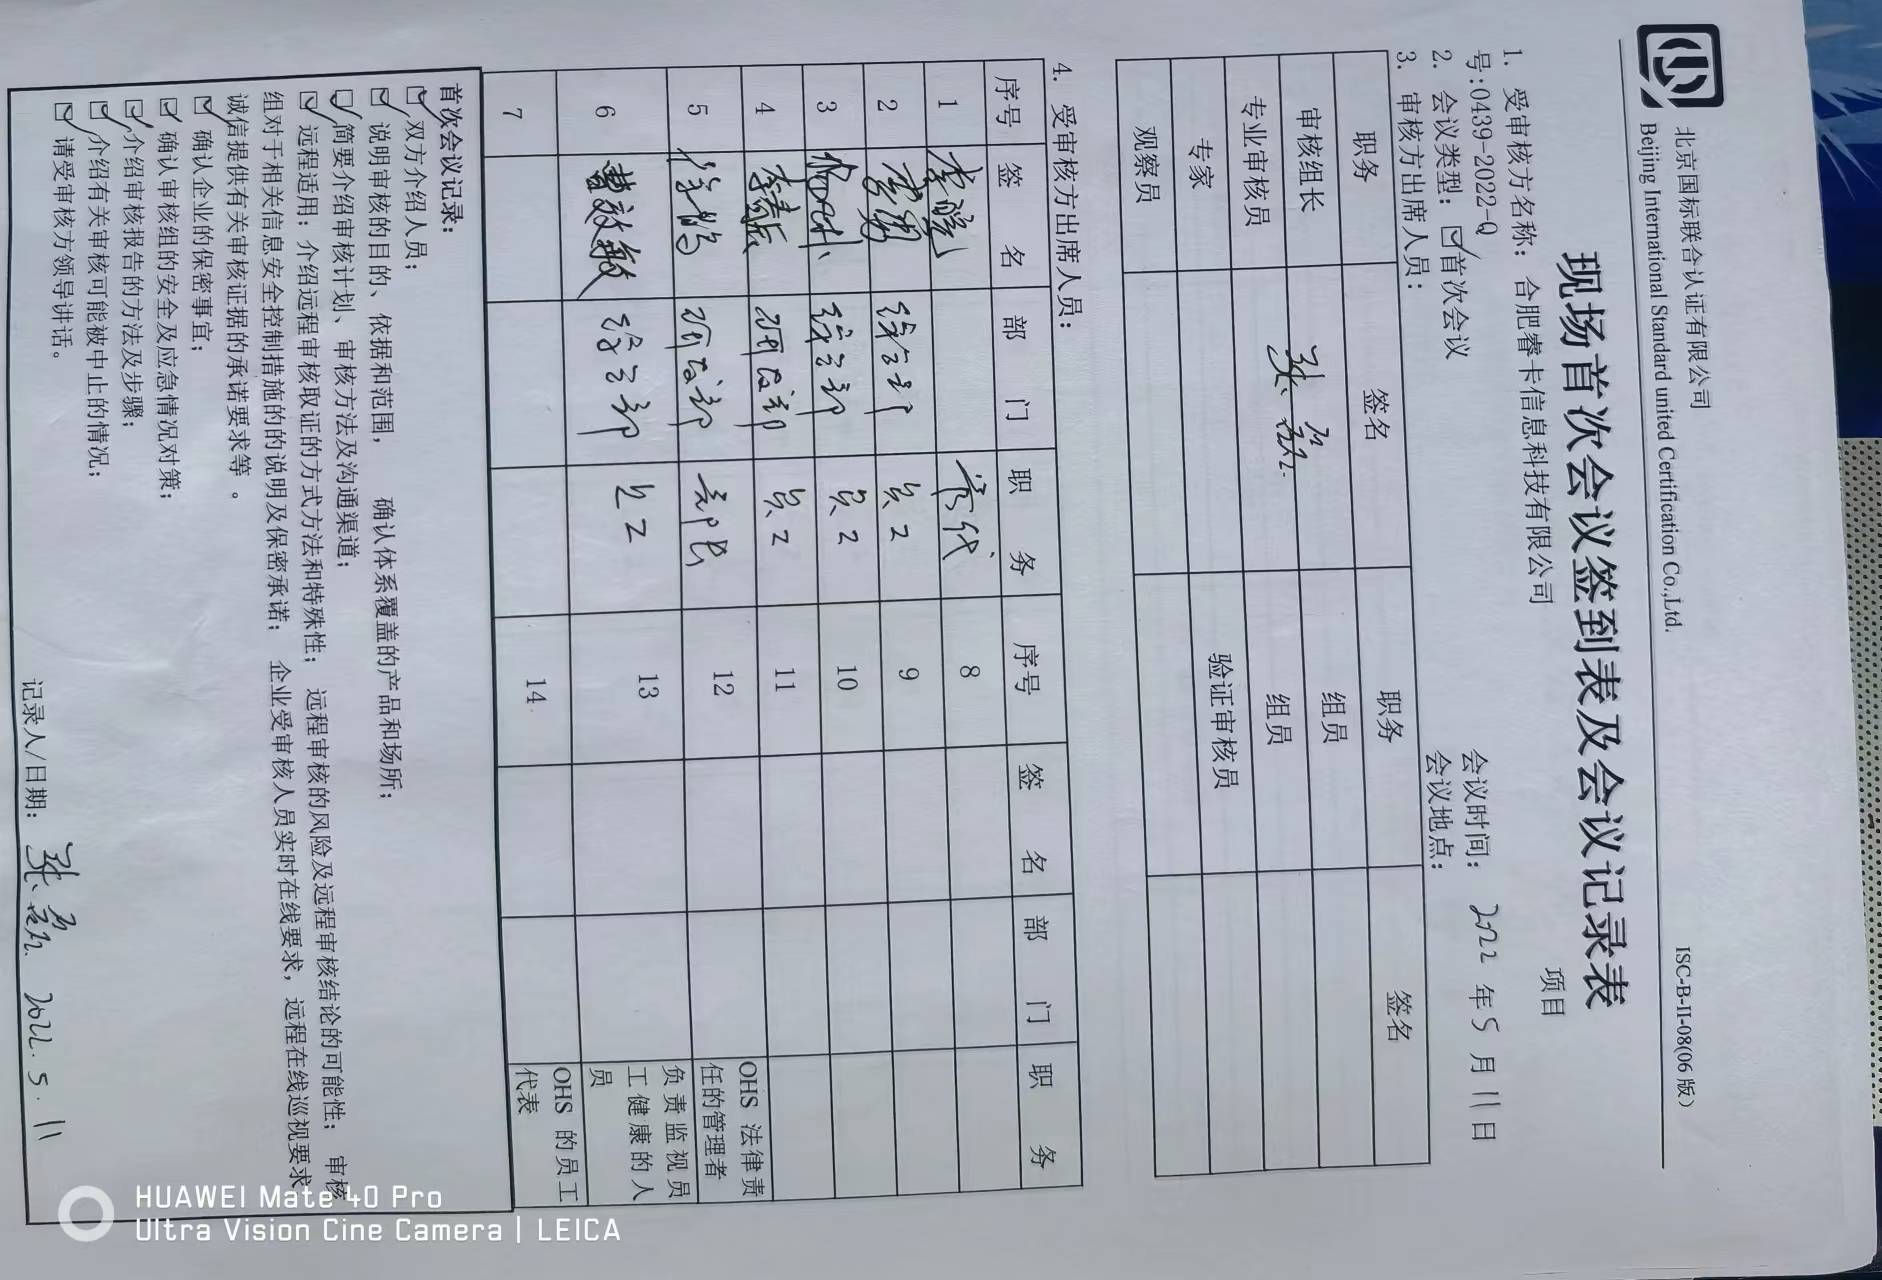 北京国标联合认证有限公司
Beijing International Standard united Certification Co.,Ltd.
ISC-B-II-08(06 版)
现场首次会议签到表及会议记录表
1. 受审核方名称：合肥睿卡信息科技有限公司 项目
号:0439-2022-Q
会议时间：2022 年 5 月 11 日
2. 会议类型：☑首次会议
会议地点：
3. 审核方出席人员：
职务 签名 职务 签名
审核组长 组员
专业审核员 组员
专家 验证审核员
观察员
4. 受审核方出席人员：
序号 签 名 部 门 职 务 序号 签 名 部 门 职 务
1 管代 8
2 综合部 员工 9
3 综合部 员工 10
4 员工 11
5 部长 12 OHS 法律责任的管理者
6 曹效敏 综合部 员工 13 负责监视员工健康的人员
7 14 OHS 的员工代表
首次会议记录：
☑双方介绍人员；
☑ 说明审核的目的、依据和范围， 确认体系覆盖的产品和场所；
☑简要介绍审核计划、审核方法及沟通渠道；
☑ 远程适用：介绍远程审核取证的方式方法和特殊性； 远程审核的风险及远程审核结论的可能性； 审核
组对于相关信息安全控制措施的的说明及保密承诺； 企业受审核人员实时在线要求，远程在线巡视要求
诚信提供有关审核证据的承诺要求等 。
☑ 确认企业的保密事宜；
☑ 确认审核组的安全及应急情况对策；
☑介绍审核报告的方法及步骤；
☑介绍有关审核可能被中止的情况；
☑ 请受审核方领导讲话。
记录人/日期： 2022.5.11
HUAWEI Mate 40 Pro
Ultra Vision Cine Camera | LEICA